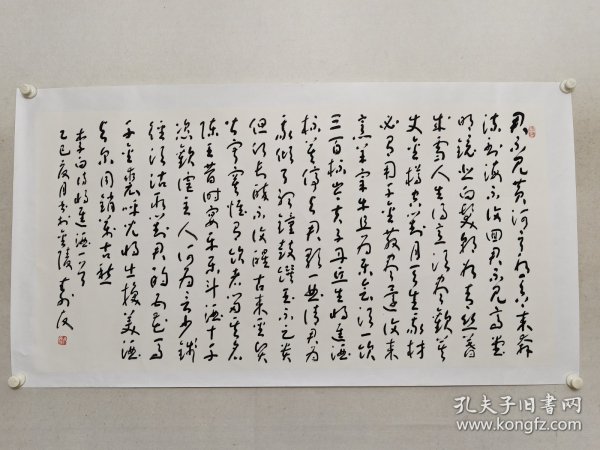 君不见黄河之水天上来奔
流到海不复回君不见高堂
明镜悲白发朝如青丝暮
成雪人生得意须尽欢莫
使金樽空对月天生我材
必有用千金散尽还复来
烹羊宰牛且为乐会须一饮
三百杯岑夫子丹丘生将进酒
杯莫停与君歌一曲请君为
我倾耳听钟鼓馔玉不足贵
但愿长醉不复醒古来圣贤
皆寂寞惟有饮者留其名
陈王昔时宴平乐斗酒十千
恣欢谑主人何为言少钱
径须沽取对君酌五花马
千金裘呼儿将出换美酒
与尔同销万古愁
李白诗将进酒一首
乙巳夏月书于金陵
孔夫子旧书网
www.kongfz.com